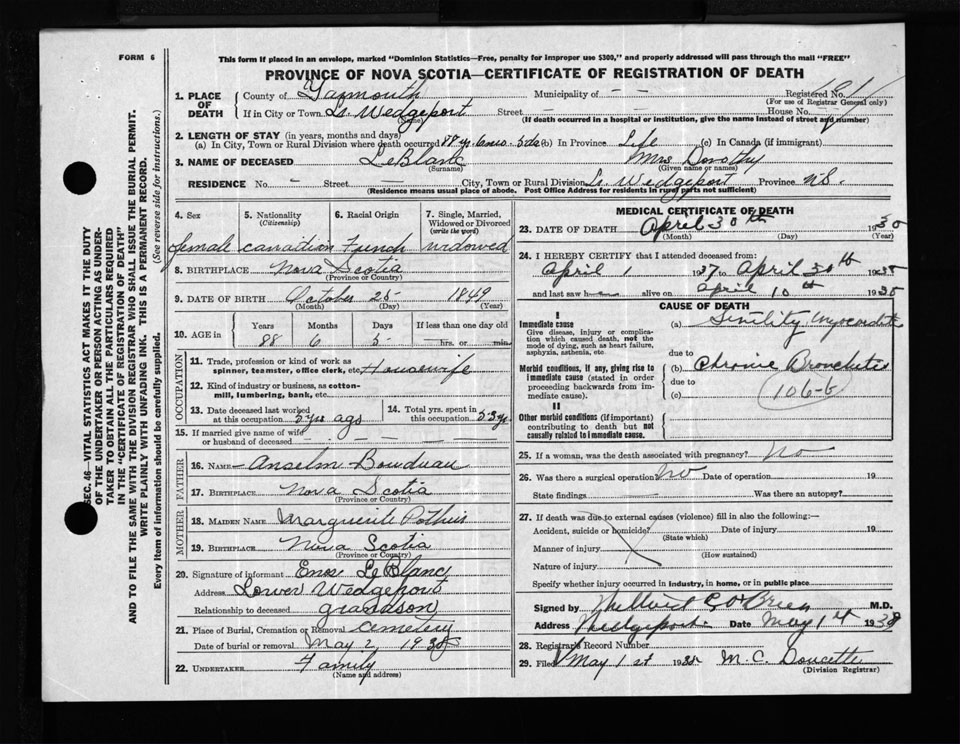 FORM 6
This form if placed in an envelope, marked "Dominion Statistics—Free, penalty for improper use $300," and properly addressed will pass through the mail "FREE"
PROVINCE OF NOVA SCOTIA—CERTIFICATE OF REGISTRATION OF DEATH
SEC. 46—VITAL STATISTICS ACT MAKES IT THE DUTY
OF THE UNDERTAKER OR PERSON ACTING AS UNDER-
TAKER TO OBTAIN ALL THE PARTICULARS REQUIRED
IN THE "CERTIFICATE OF REGISTRATION OF DEATH"
AND TO FILE THE SAME WITH THE DIVISION REGISTRAR WHO SHALL ISSUE THE BURIAL PERMIT.
WRITE PLAINLY WITH UNFADING INK. THIS IS A PERMANENT RECORD.
Every item of information should be carefully supplied. (See reverse side for instructions.)
1. PLACE OF DEATH
County of Yarmouth Municipality of – – Registered No.
(For use of Registrar General only)
If in City or Town Lr Wedgeport Street – – House No.
(Name) (If death occurred in a hospital or institution, give the name instead of street and number)
2. LENGTH OF STAY (in years, months and days)
(a) In City, Town or Rural Division where death occurred 88 ys 6 mos. 5 ds (b) In Province Life (c) In Canada (if immigrant)
3. NAME OF DECEASED LeBlanc Mrs Dorothy
(Surname) (Given name or names)
RESIDENCE No. – Street – City, Town or Rural Division Lr Wedgeport Province N.S.
(Residence means usual place of abode. Post Office Address for residents in rural parts not sufficient)
4. Sex
female
5. Nationality
(Citizenship)
canadian
6. Racial Origin
French
7. Single, Married,
Widowed or Divorced
(write the word)
widowed
8. BIRTHPLACE Nova Scotia
(Province or Country)
9. DATE OF BIRTH October 25 1849
(Month) (Day) (Year)
10. AGE in
Years Months Days If less than one day old
88 6 5 hrs. or min.
OCCUPATION
11. Trade, profession or kind of work as
spinner, teamster, office clerk, etc. Housewife
12. Kind of industry or business, as cotton-
mill, lumbering, bank, etc.
13. Date deceased last worked
at this occupation 5 yrs ago
14. Total yrs. spent in
this occupation 53 ys
15. If married give name of wife
or husband of deceased – – – –
FATHER
16. NAME Anselm Boudreau
17. BIRTHPLACE Nova Scotia
(Province or Country)
MOTHER
18. MAIDEN NAME Marguerite Pothier
19. BIRTHPLACE Nova Scotia
(Province or Country)
20. Signature of informant Enos LeBlanc
Address Lower Wedgeport
Relationship to deceased grandson
21. Place of Burial, Cremation or Removal cemetery
Date of burial or removal May 2, 1938
22. UNDERTAKER Family
(Name and address)
MEDICAL CERTIFICATE OF DEATH
23. DATE OF DEATH April 30th 1938
(Month) (Day) (Year)
24. I HEREBY CERTIFY that I attended deceased from:
April 1 1937 to April 30th 1938
and last saw h alive on April 10th 1938
CAUSE OF DEATH
I
Immediate cause
Give disease, injury or complica-
tion which caused death, not the
mode of dying, such as heart failure,
asphyxia, asthenia, etc.
Morbid conditions, if any, giving rise to
immediate cause (stated in order
proceeding backwards from im-
mediate cause).
II
Other morbid conditions (if important)
contributing to death but not
causally related to immediate cause.
(a) Senility Myocarditis
due to
(b) Chronic Bronchitis
due to
(c) 106-b
25. If a woman, was the death associated with pregnancy? No
26. Was there a surgical operation? No Date of operation 19
State findings Was there an autopsy?
27. If death was due to external causes (violence) fill in also the following:—
Accident, suicide or homicide? Date of injury 19
(State which)
Manner of injury
(How sustained)
Nature of injury
Specify whether injury occurred in industry, in home, or in public place
Signed by O'Brien M.D.
Address Wedgeport Date May 1st 1938
28. Registrar's Record Number
29. Filed May 1st 1938 M.C. Doucette
(Division Registrar)